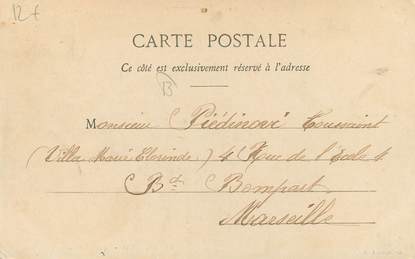 12 €
CARTE POSTALE
Ce côté est exclusivement réservé à l'adresse
B
Monsieur Piédinovi Toussaint
(Villa Marie Clorinde) 4 Rue de l'Ecole 4
Bd Bompart
Marseille